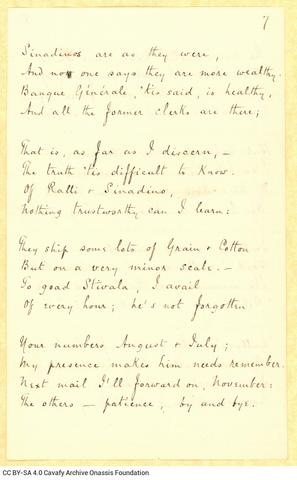 7
Sinadinos are as they were,
And now one says they are more wealthy.
Banque Générale, 'tis said, is healthy,
And all the former clerks are there;
That is, as far as I discern, –
The truth 'tis difficult to know.
Of Ralli & Sinadino,
Nothing trustworthy can I learn:
They ship some lots of Grain & Cotton
But on a very minor scale. –
To goad Stivala, I avail
Of every hour; he's not forgotten
Your numbers August & July;
My presence makes him needs remember.
Next mail I'll forward on, November:
The others – patience, by and bye.
CC BY-SA 4.0 Cavafy Archive Onassis Foundation